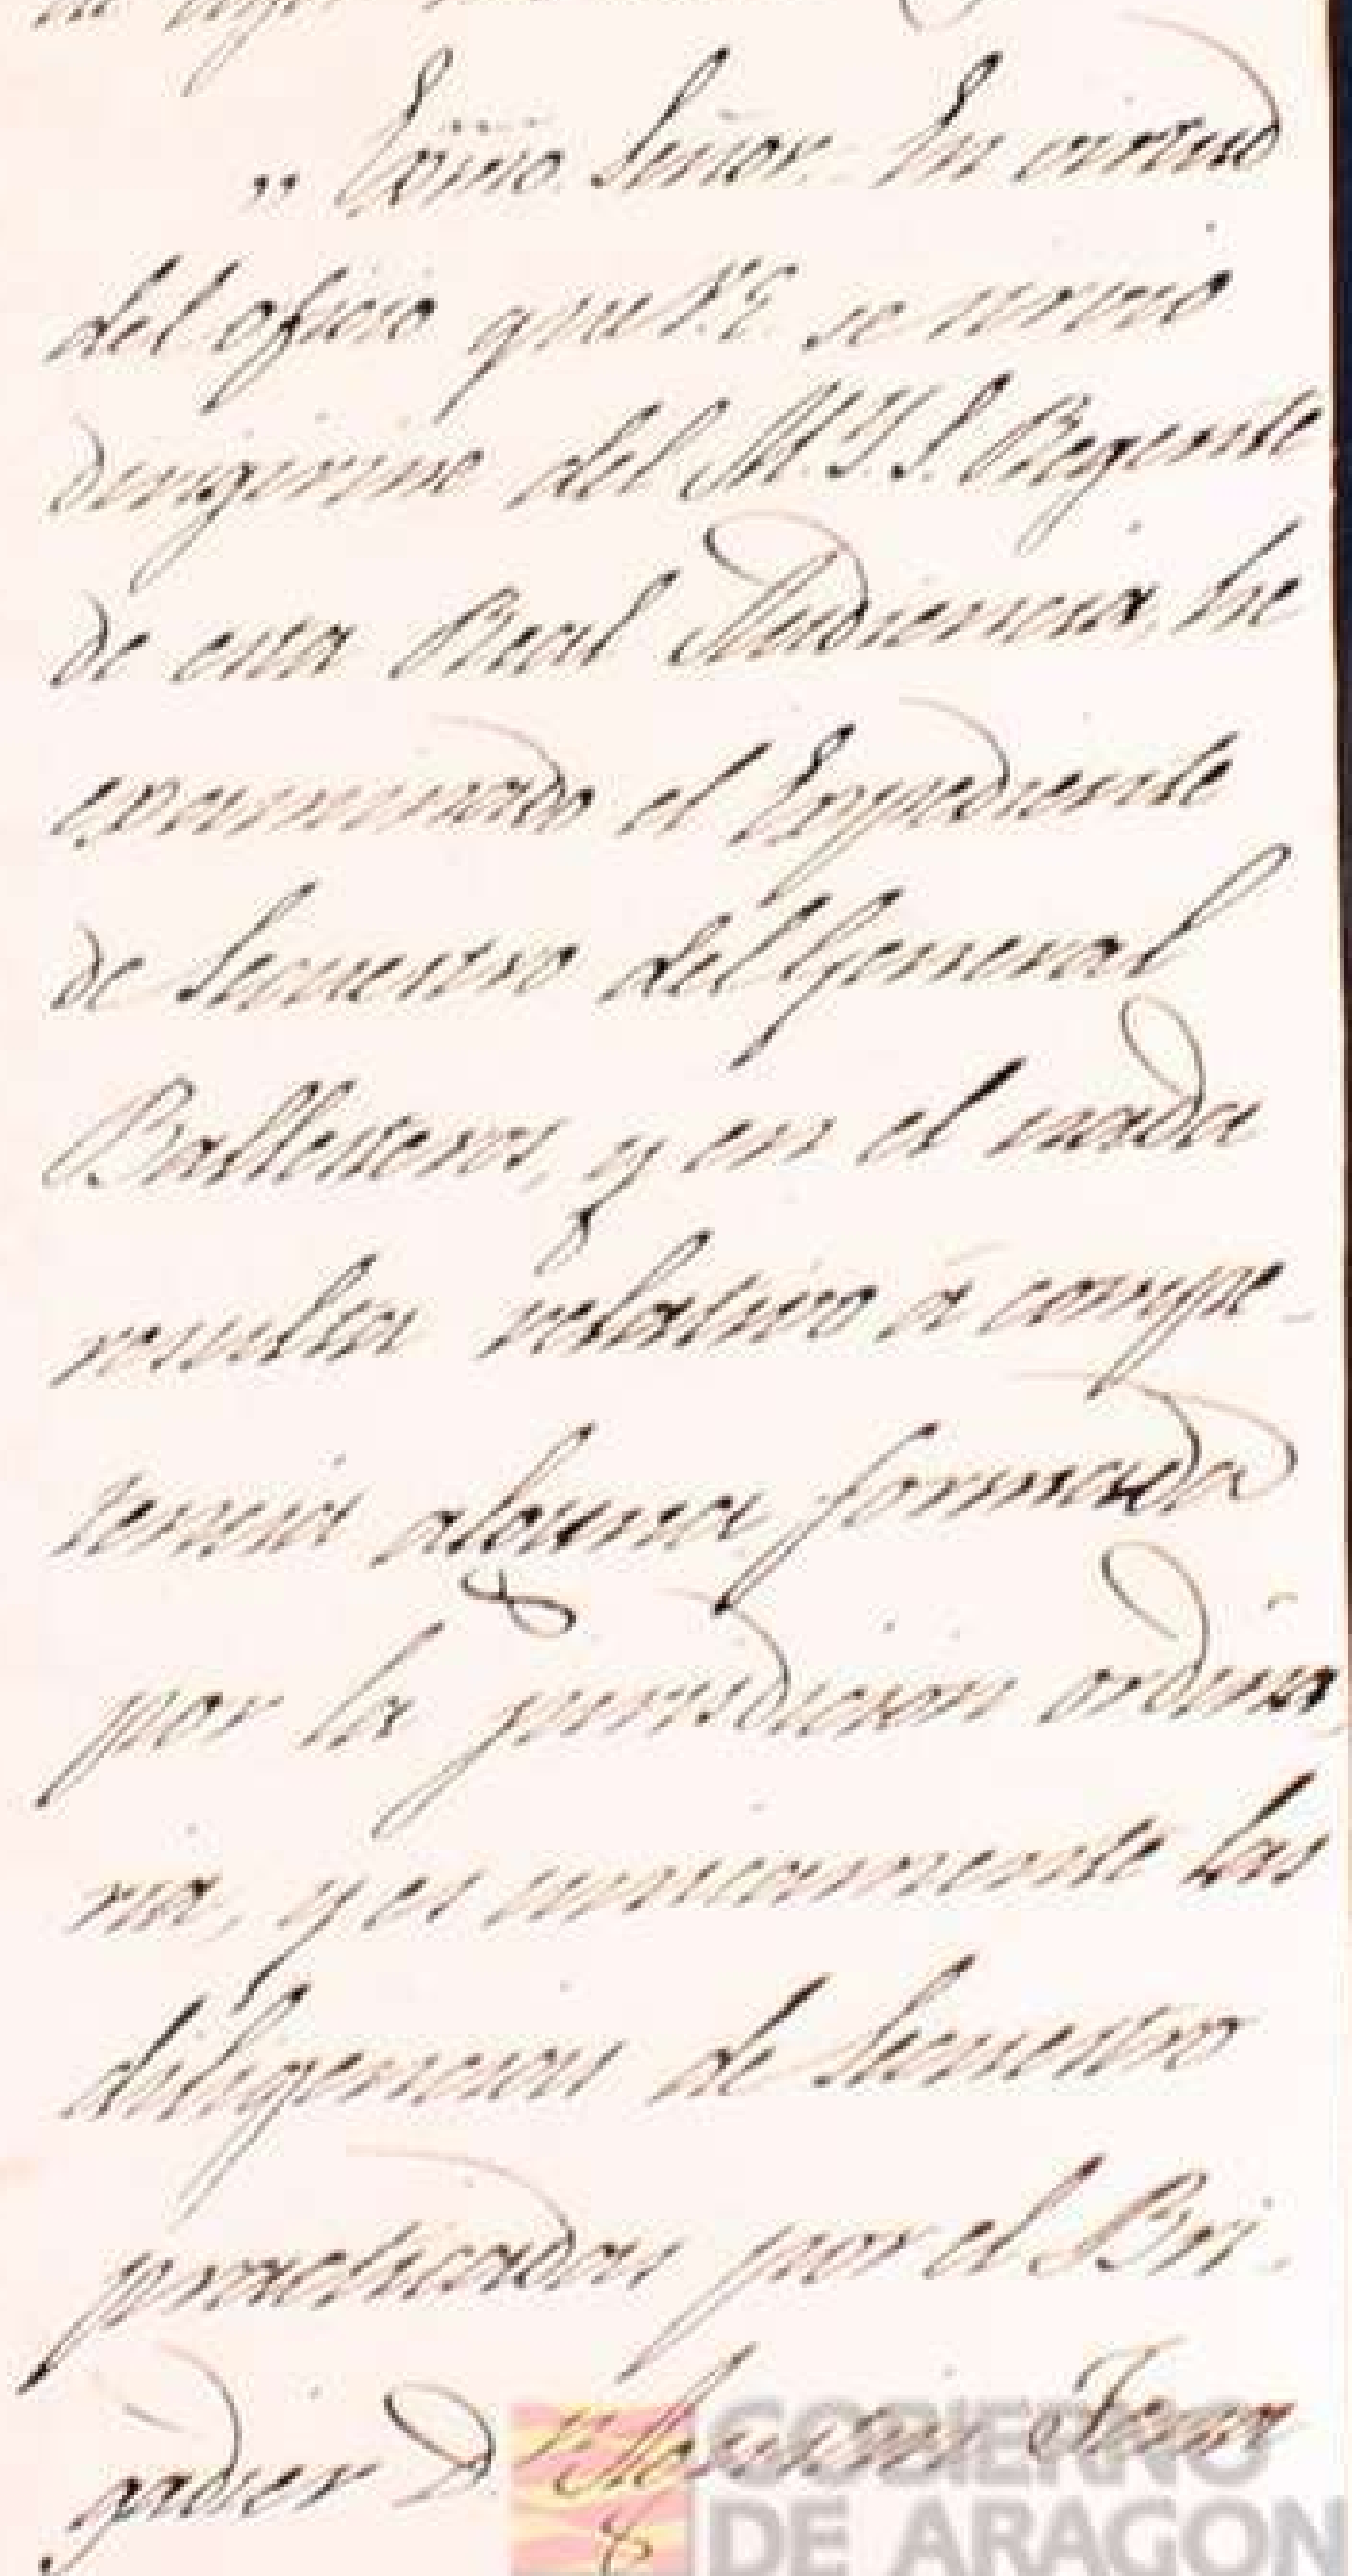 „ Exmo. Señor. En virtud
del oficio que V.E. se sirvio
dirigirme del M.I.S. Regente
de esta Real Audiencia, he
examinado el Expediente
de Sequestro del General
Ballesteros, y en el nada
resulta relativo á compe-
tencia alguna formada
por la jurisdicion ordina,
ria, y es unicamente las
diligencias de Secuestro
practicadas por el Bri-
gadier D. Agustin
GOBIERNO
DE ARAGON